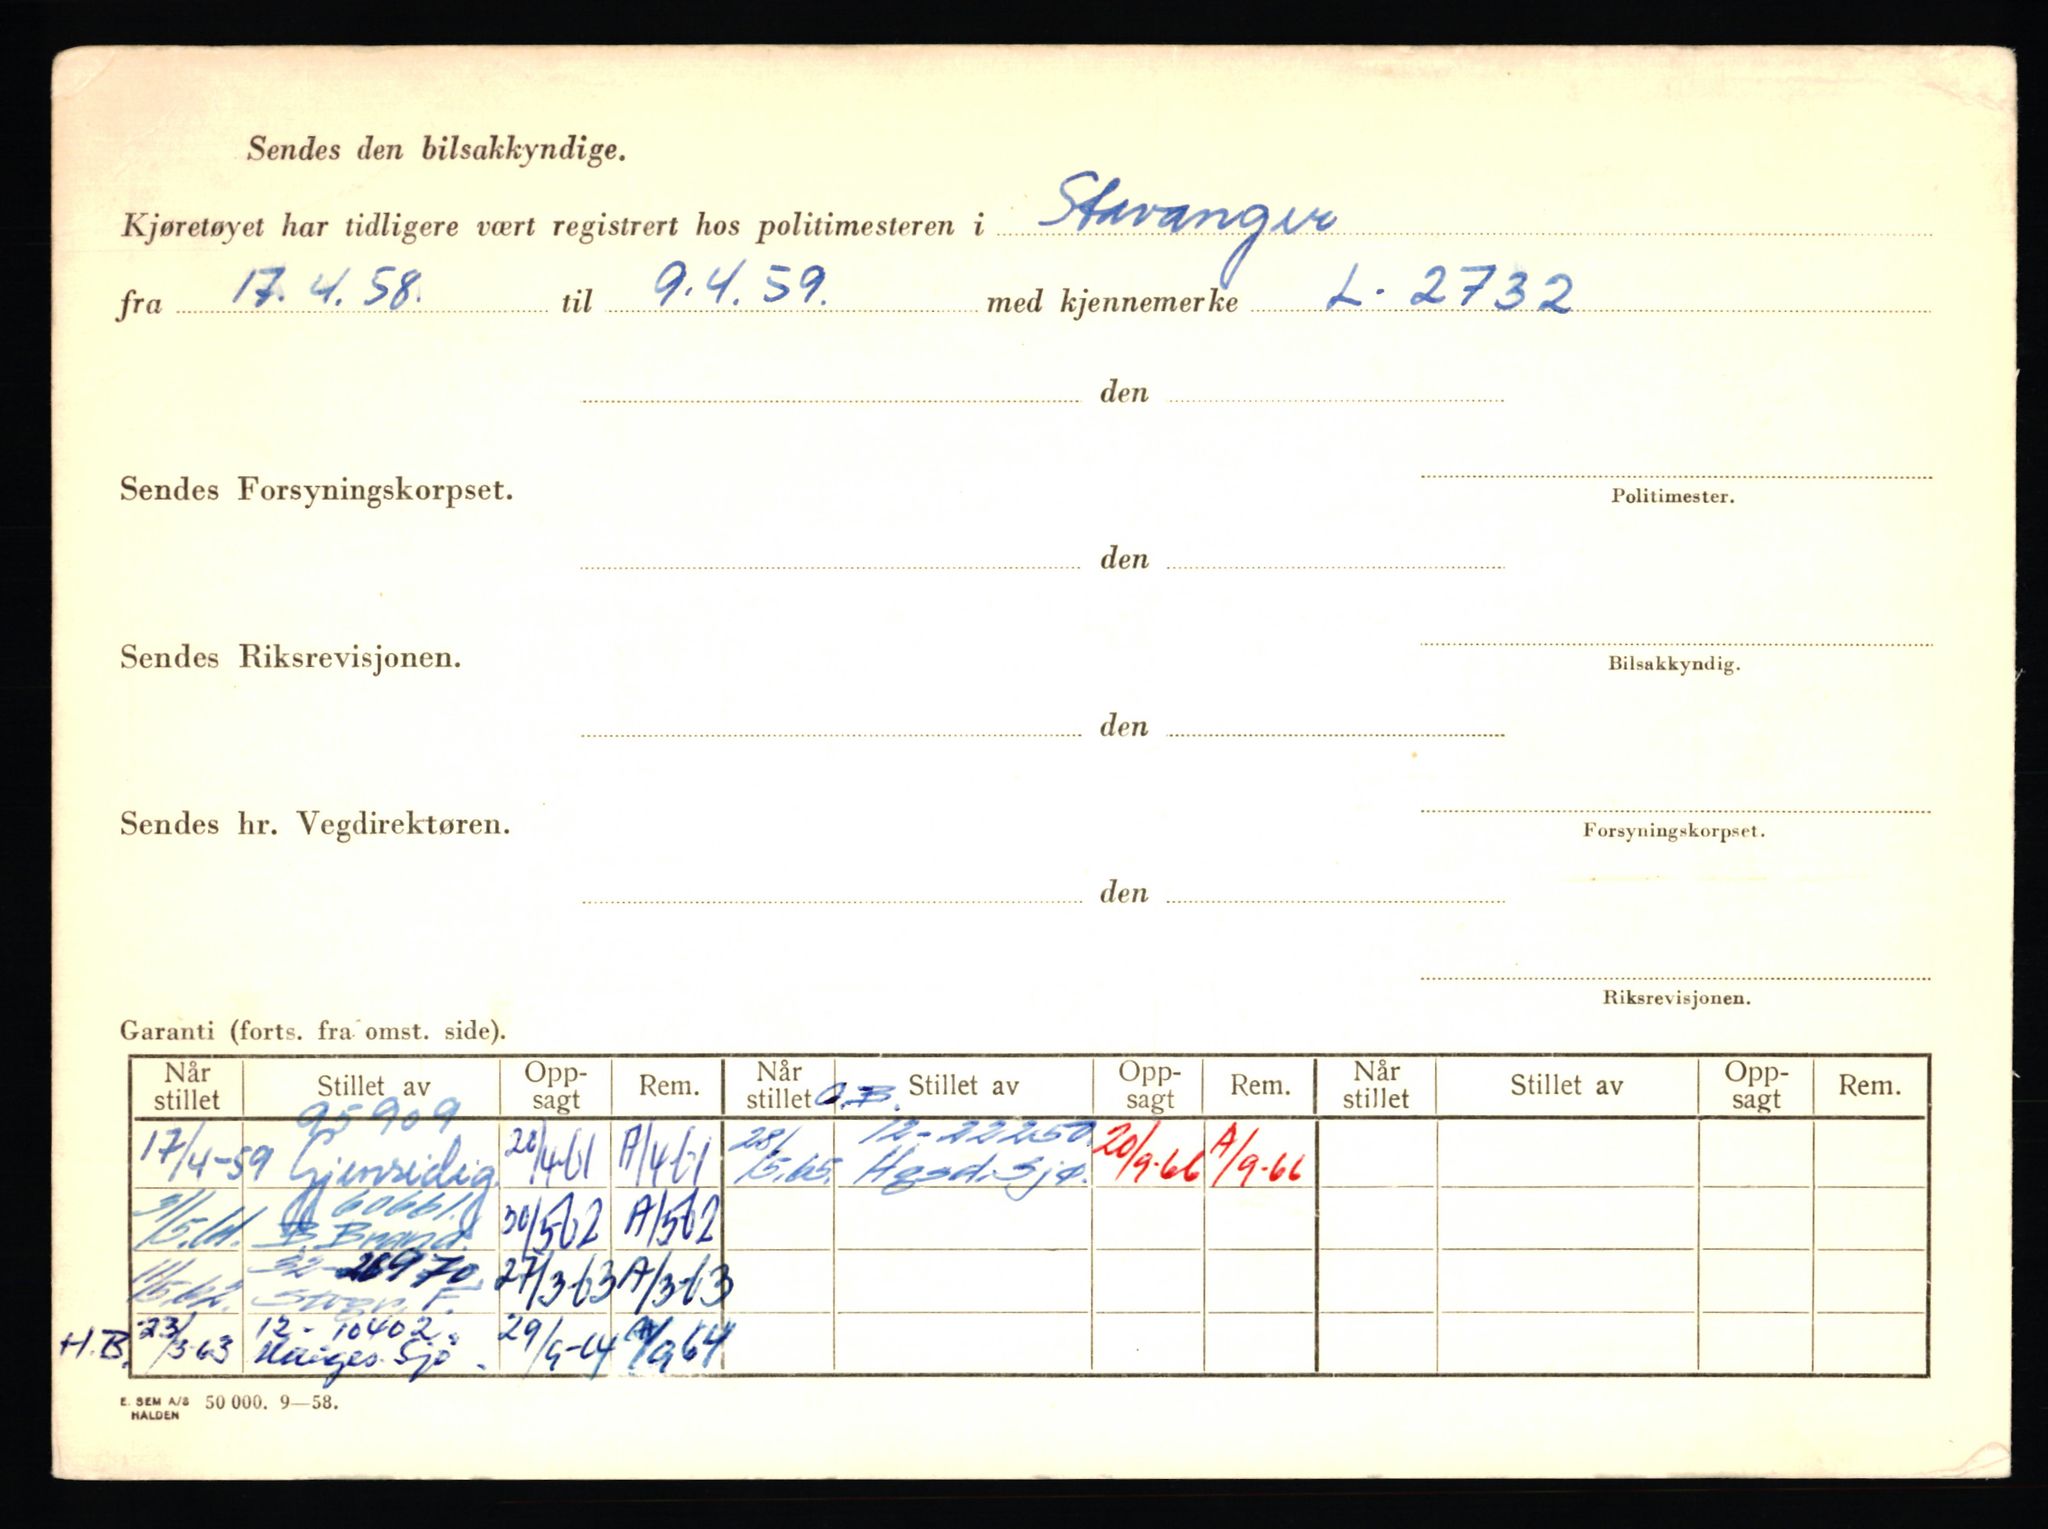 Sendes den bilsakkyndige.
Kjøretøyet har tidligere vært registrert hos politimesteren i Stavanger
fra 17.4.58. til 9.4.59. med kjennemerke L-2732
den
Sendes Forsyningskorpset.
Politimester.
den
Sendes Riksrevisjonen.
Bilsakkyndig.
den
Sendes hr. Vegdirektøren.
Forsyningskorpset.
den
Riksrevisjonen.
Garanti (forts. fra omst. side).
Når stillet Stillet av Opp-sagt Rem. Når stillet Stillet av Opp-sagt Rem. Når stillet Stillet av Opp-sagt Rem.
95909 12-22250
17/4-59 Gjensidig. /4-61 A/4-61 28/5.65. Hgsd. Sjø. 20/9-66 A/9-66
60661.
31/5.61. B. Brand. 30/5-62 A/5-62
32-28970
/5.62. F. 27/3-63 A/3-63
12-10402.
H.B. 23/3-63 Hauges. Sjø. 29/9-64 A/9 64
E. SEM A/S 50 000. 9—58.
HALDEN